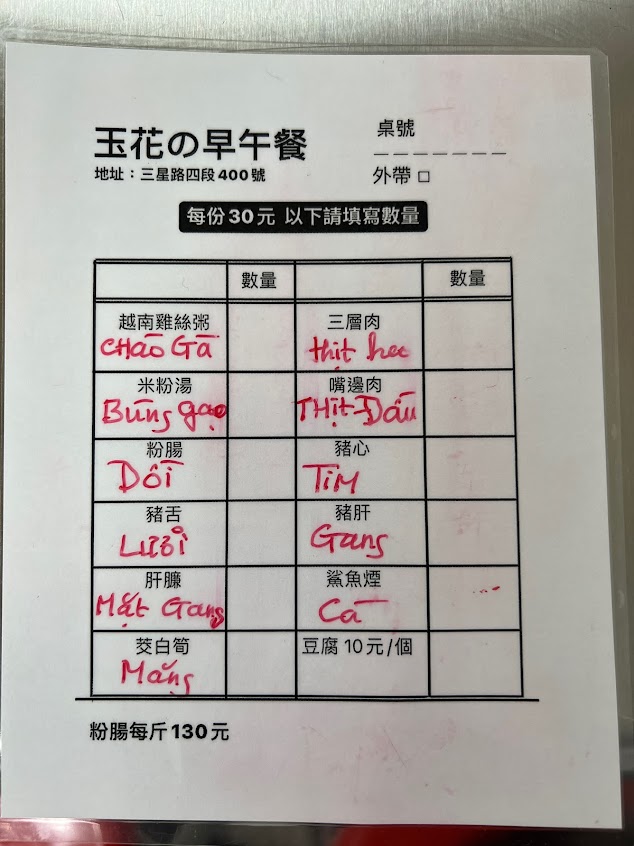 玉花の早午餐
桌號
地址：三星路四段400號
外帶 □
每份30元 以下請填寫數量
數量 數量
越南雞絲粥 三層肉
CHáo Gà thịt
米粉湯 嘴邊肉
Būng gạo THịt Dầu
粉腸 豬心
Dồi TiM
豬舌 豬肝
Lưỡi Gang
肝臁 鯊魚煙
Mặt Gang Cā
茭白筍 豆腐10元/個
Măng
粉腸每斤130元